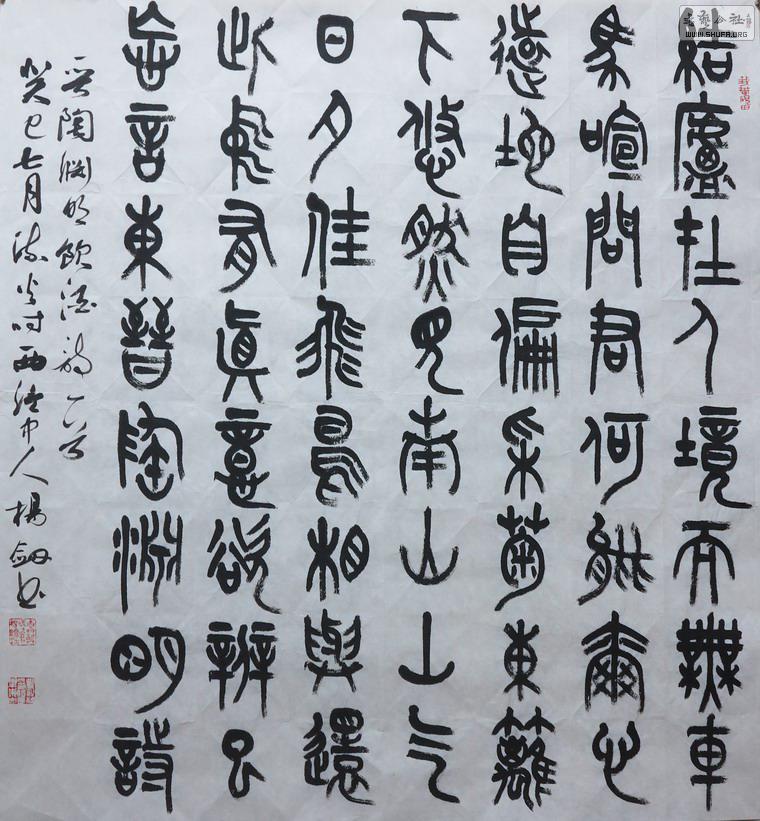 結廬在人境而無車
馬喧問君何能爾心
遠地自偏采菊東籬
下悠然見南山山气
日夕佳飛鳥相與還
此有眞意欲辨已
忘言東晉陶淵明詩
晉陶淵明飲酒詩一首
癸巳七月流火時西中人楊劍書
書藝公社
WWW.SHUFA.ORG